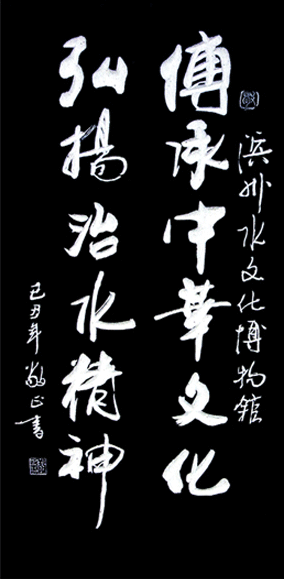 滨州水文化博物馆
傳承中華文化
弘揚治水精神
己丑年敬正書